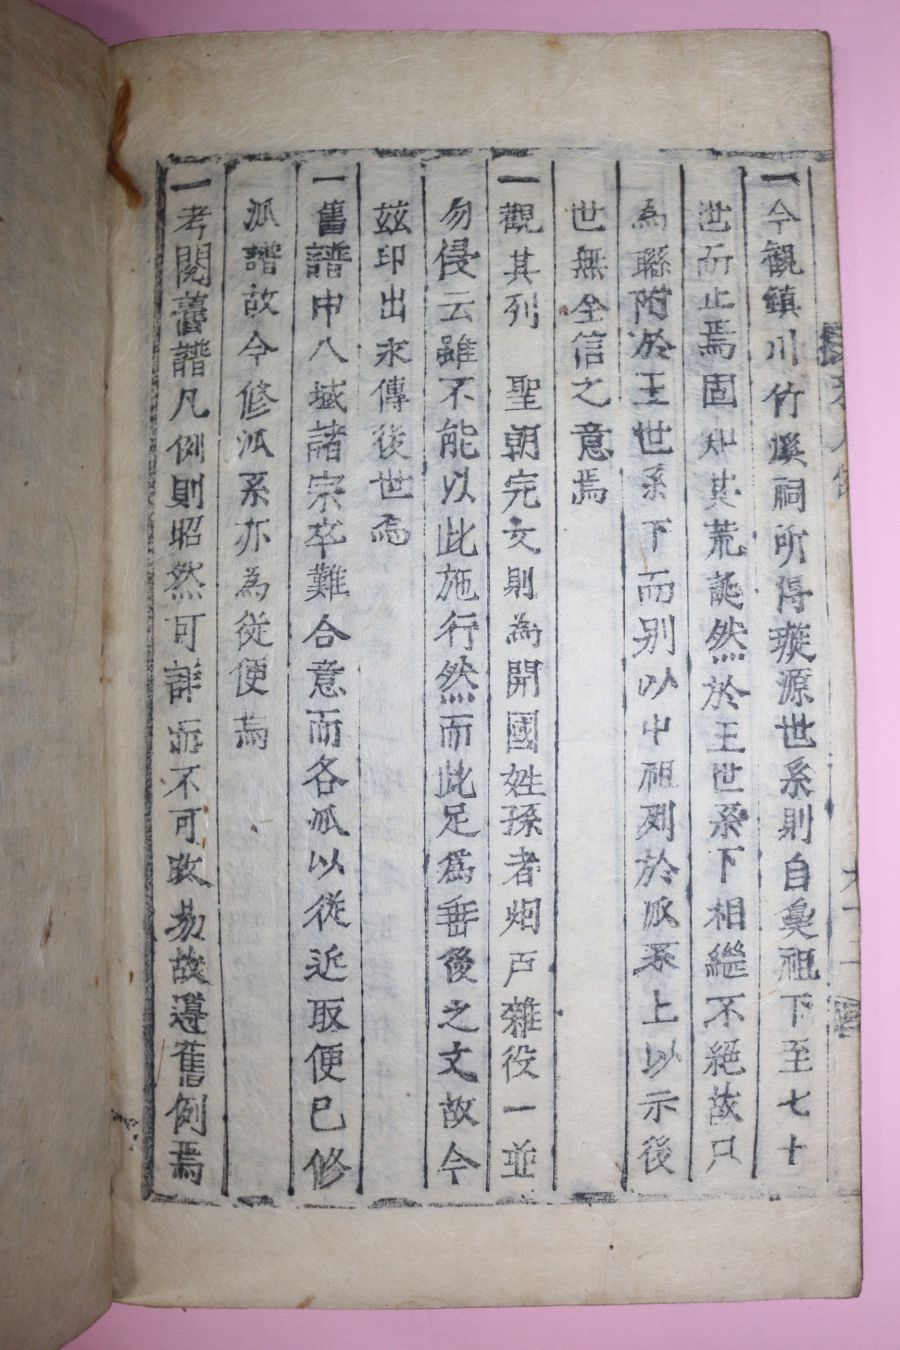 一今観鎮川竹溪祠所得璇源世系則自奠祖下至七十
世而止焉固知其荒誕然於王世系下相繼不絕故只
為聯附於王世系下而别以中祖列於派系上以示後
世無全信之意焉
一觀其列　聖朝完文則為開國姓孫者烟戶雜役一並
勿侵云雖不能以此施行然而此足爲垂後之文故今
玆印出永傳後世焉
一舊譜中八域諸宗卒難合意而各派以從近取便已修
派譜故今修派系亦為從便焉
一考閱舊譜凡例則昭然可詳而不可改易故遵舊例焉